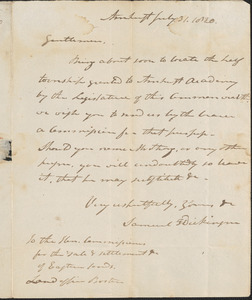 Amherst July 31. 1820.
Gentlemen,
Being about soon to locate the half
township granted to Amherst Academy
by the Legislature of this Commonwealth
we wish you to send us by the bearer
a Commission for that purpose.
Should you name Mr. or any other
person, you will undoubtedly so leave
it, that he may substitute &c
Very respectfully, Yours &c
Samuel F Dickinson
To the Hon. Commissioners
for the sale & settlement &c
of Eastern Lands.
Land office Boston